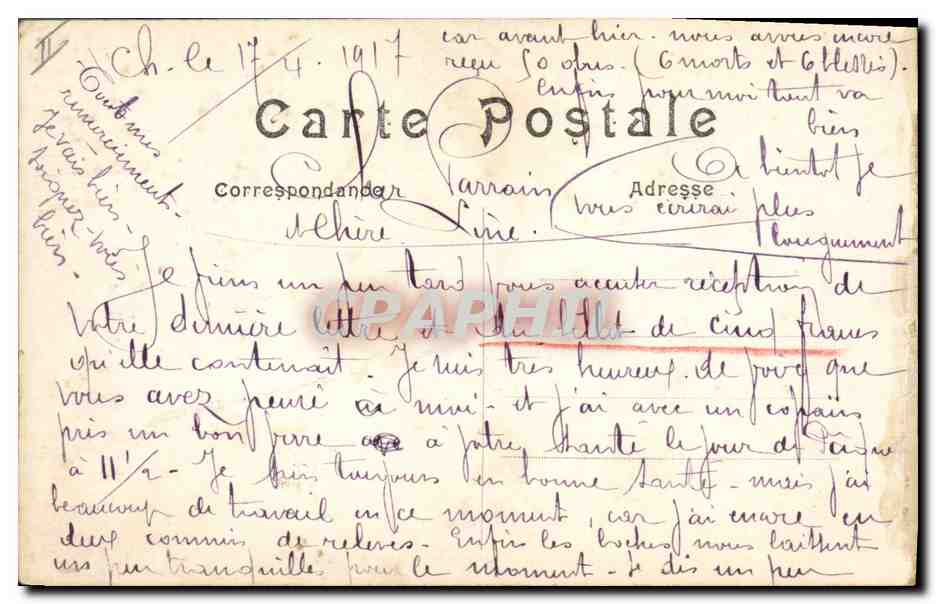 II
Ch. le 17/4. 1917
Carte Postale
Correspondance
Adresse
Cher Parrain
Chère Line.
Je viens un peu tard vous accuser réception de
votre dernière lettre et du billet de cinq francs
qu'elle contenait. Je suis très heureux de voir que
vous avez pensé à moi - et j'ai avec un copain
pris un bon verre à votre santé le jour de Pâques
à 11 1/2 - Je suis toujours en bonne santé - mais j'ai
beaucoup de travail en ce moment, car j'ai encore eu
deux commis de relevés - Enfin les boches nous laissent
un peu tranquilles pour le moment - Je dis un peu
car avant hier nous avons encore
reçu 50 obus. (6 morts et 6 blessés).
Enfin pour moi tout va
bien
A bientôt je
vous écrirai plus
longuement
Tout mes
remerciements.
Je vais bien
soignez-vous
bien.
CPAPHIL